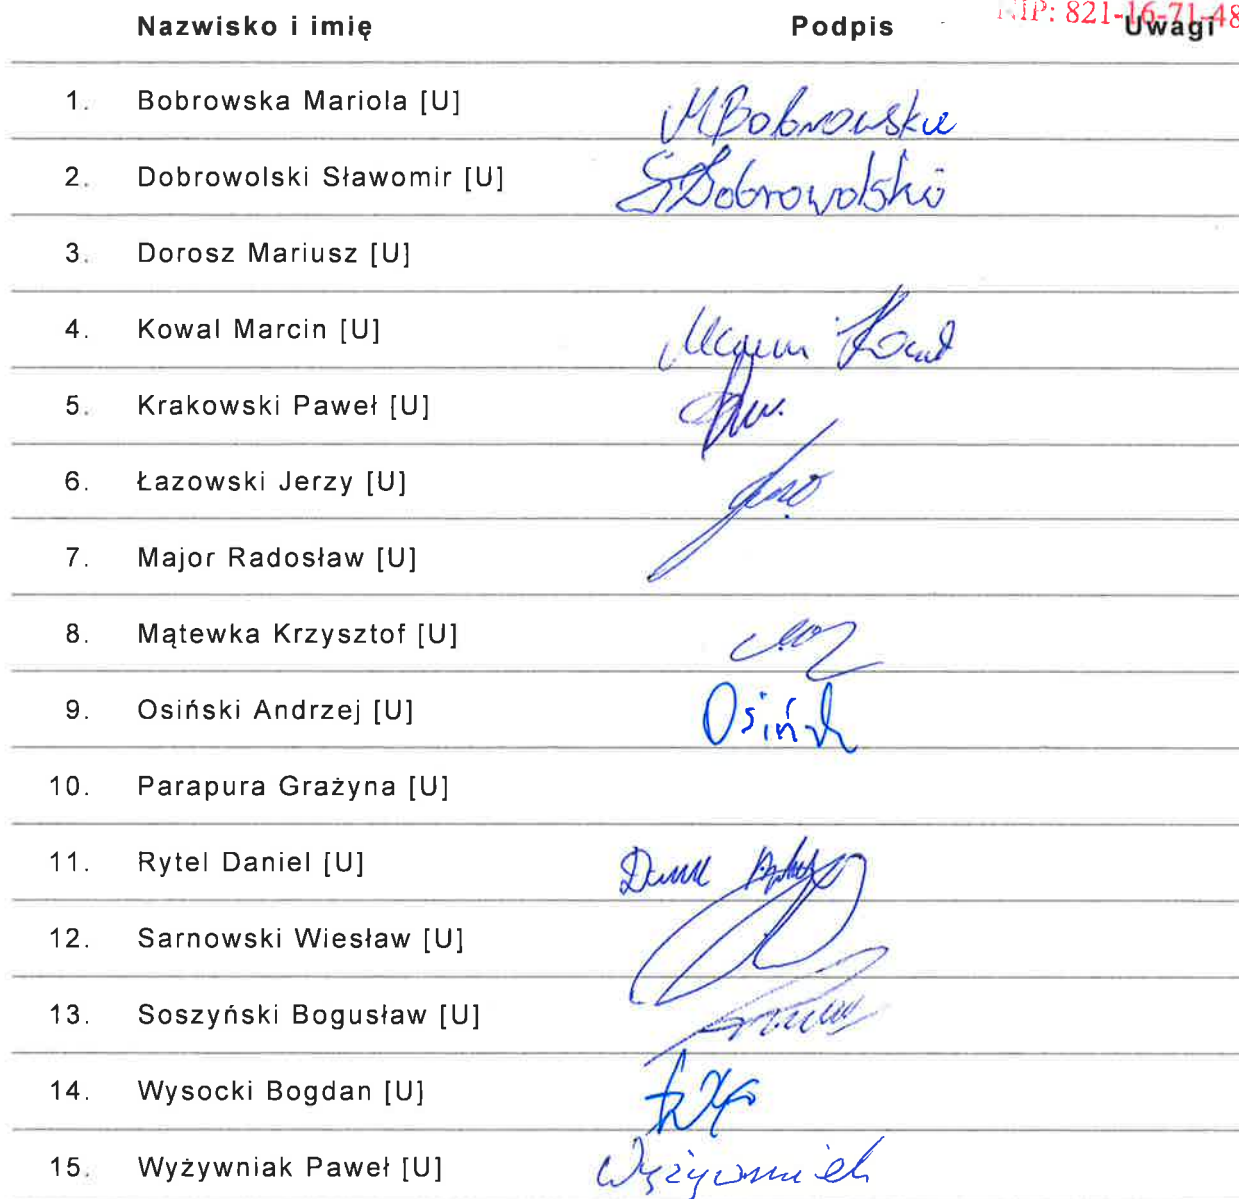 NIP: 821-16-71-48
Nazwisko i imię Podpis Uwagi
1. Bobrowska Mariola [U] MBobrowska
2. Dobrowolski Sławomir [U] SDobrowolski
3. Dorosz Mariusz [U]
4. Kowal Marcin [U] Marcin Kowal
5. Krakowski Paweł [U]
6. Łazowski Jerzy [U]
7. Major Radosław [U]
8. Mątewka Krzysztof [U]
9. Osiński Andrzej [U] Osiński
10. Parapura Grażyna [U]
11. Rytel Daniel [U] Daniel Rytel
12. Sarnowski Wiesław [U]
13. Soszyński Bogusław [U]
14. Wysocki Bogdan [U]
15. Wyżywniak Paweł [U] Wyżywniak